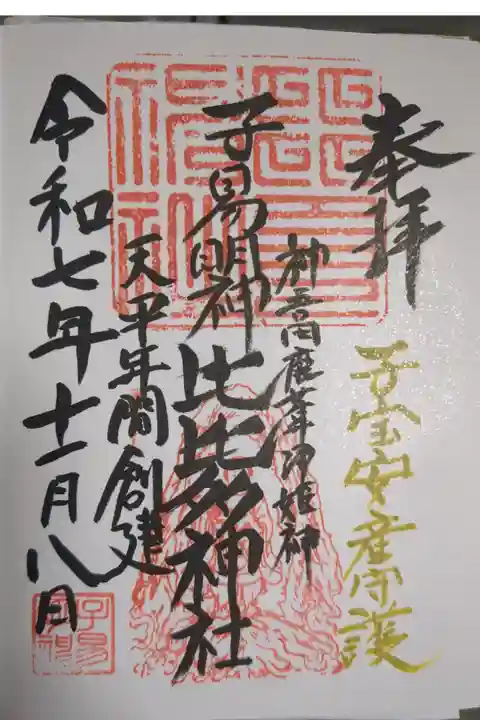 奉拝
子宝安産守護
神吾田鹿葦津姫神
子易明神
比比多神社
天平年間創建
令和七年十一月八日